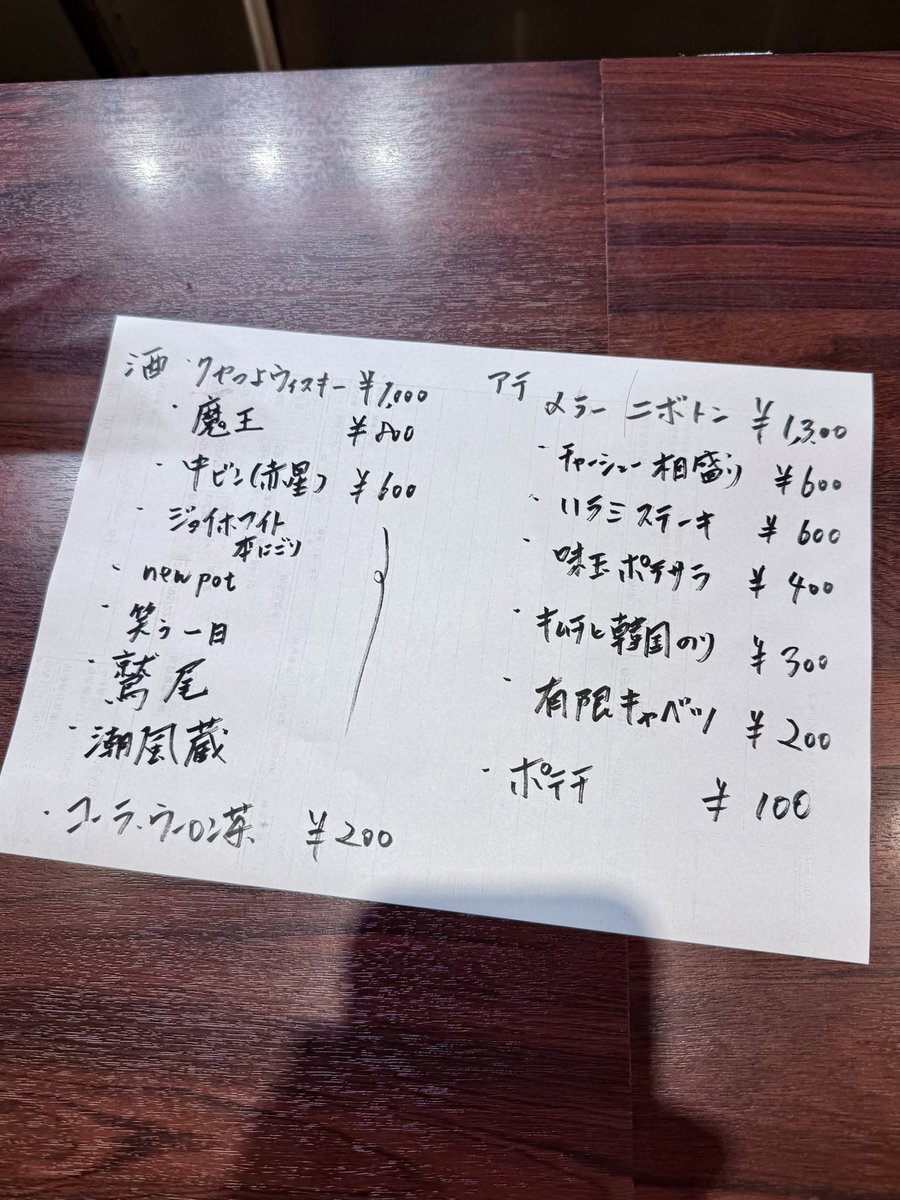 酒
・クヤつよウィスキー ¥1,000
・魔王 ¥800
・中ビン(赤星) ¥600
・ジョイホワイト
本にごり
・new pot
・笑う一日
・鷲尾
・潮風蔵
・コーラ、ウーロン茶 ¥200
アテ
メラー / ニボトン ¥1,300
・チャーシュー相盛り ¥600
・ハラミステーキ ¥600
・味玉ポテサラ ¥400
・キムチと韓国のり ¥300
・有限キャベツ ¥200
・ポテチ ¥100